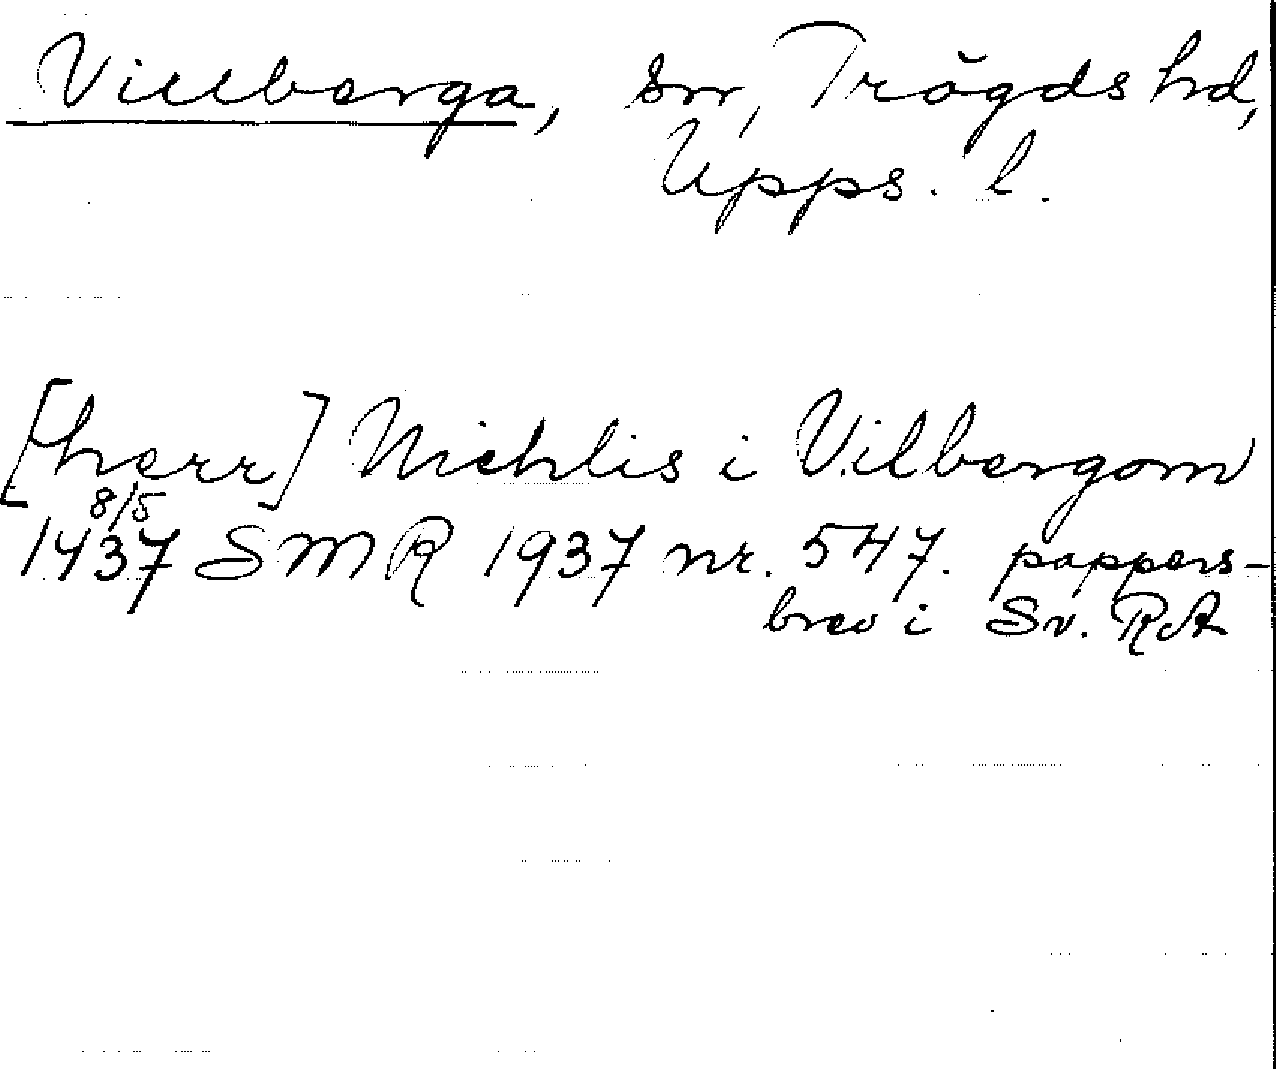 Villberga, sn, Trögds hd,
Upps. l.
[herr] Nichlis i Vilbergom
8/5
1437 SMR 1937 nr. 547. pappers-
brev i Sv. RA